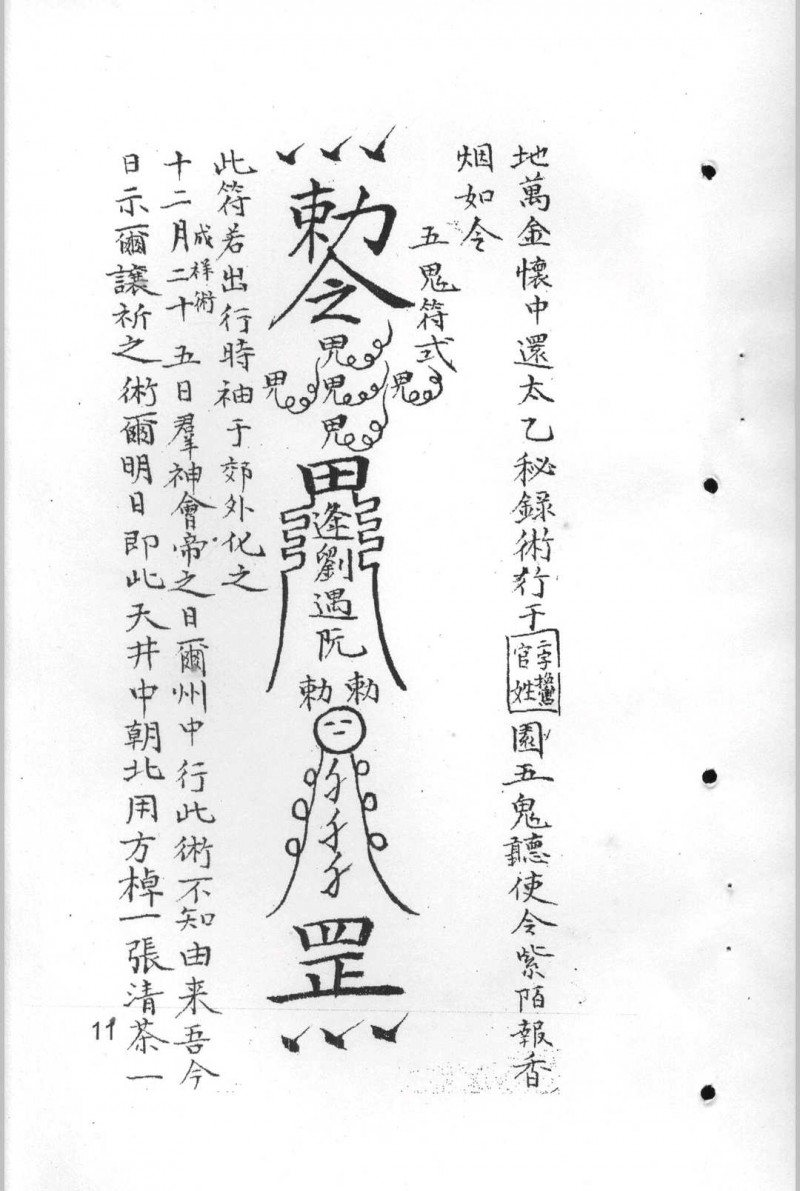 地萬金懷中還太乙秘錄術行于
二字換寫
官姓
園五鬼聽使令紫陌報香
烟如令
五鬼符式
勅令
鬼
鬼鬼鬼
鬼
田
逢劉遇阮
勅勅
罡
此符若出行時袖于郊外化之
成祥術
十二月二十五日羣神會帝之日爾州中行此術不知由来吾今
日示爾讓祈之術爾明日即此天井中朝北用方棹一張清茶一
11